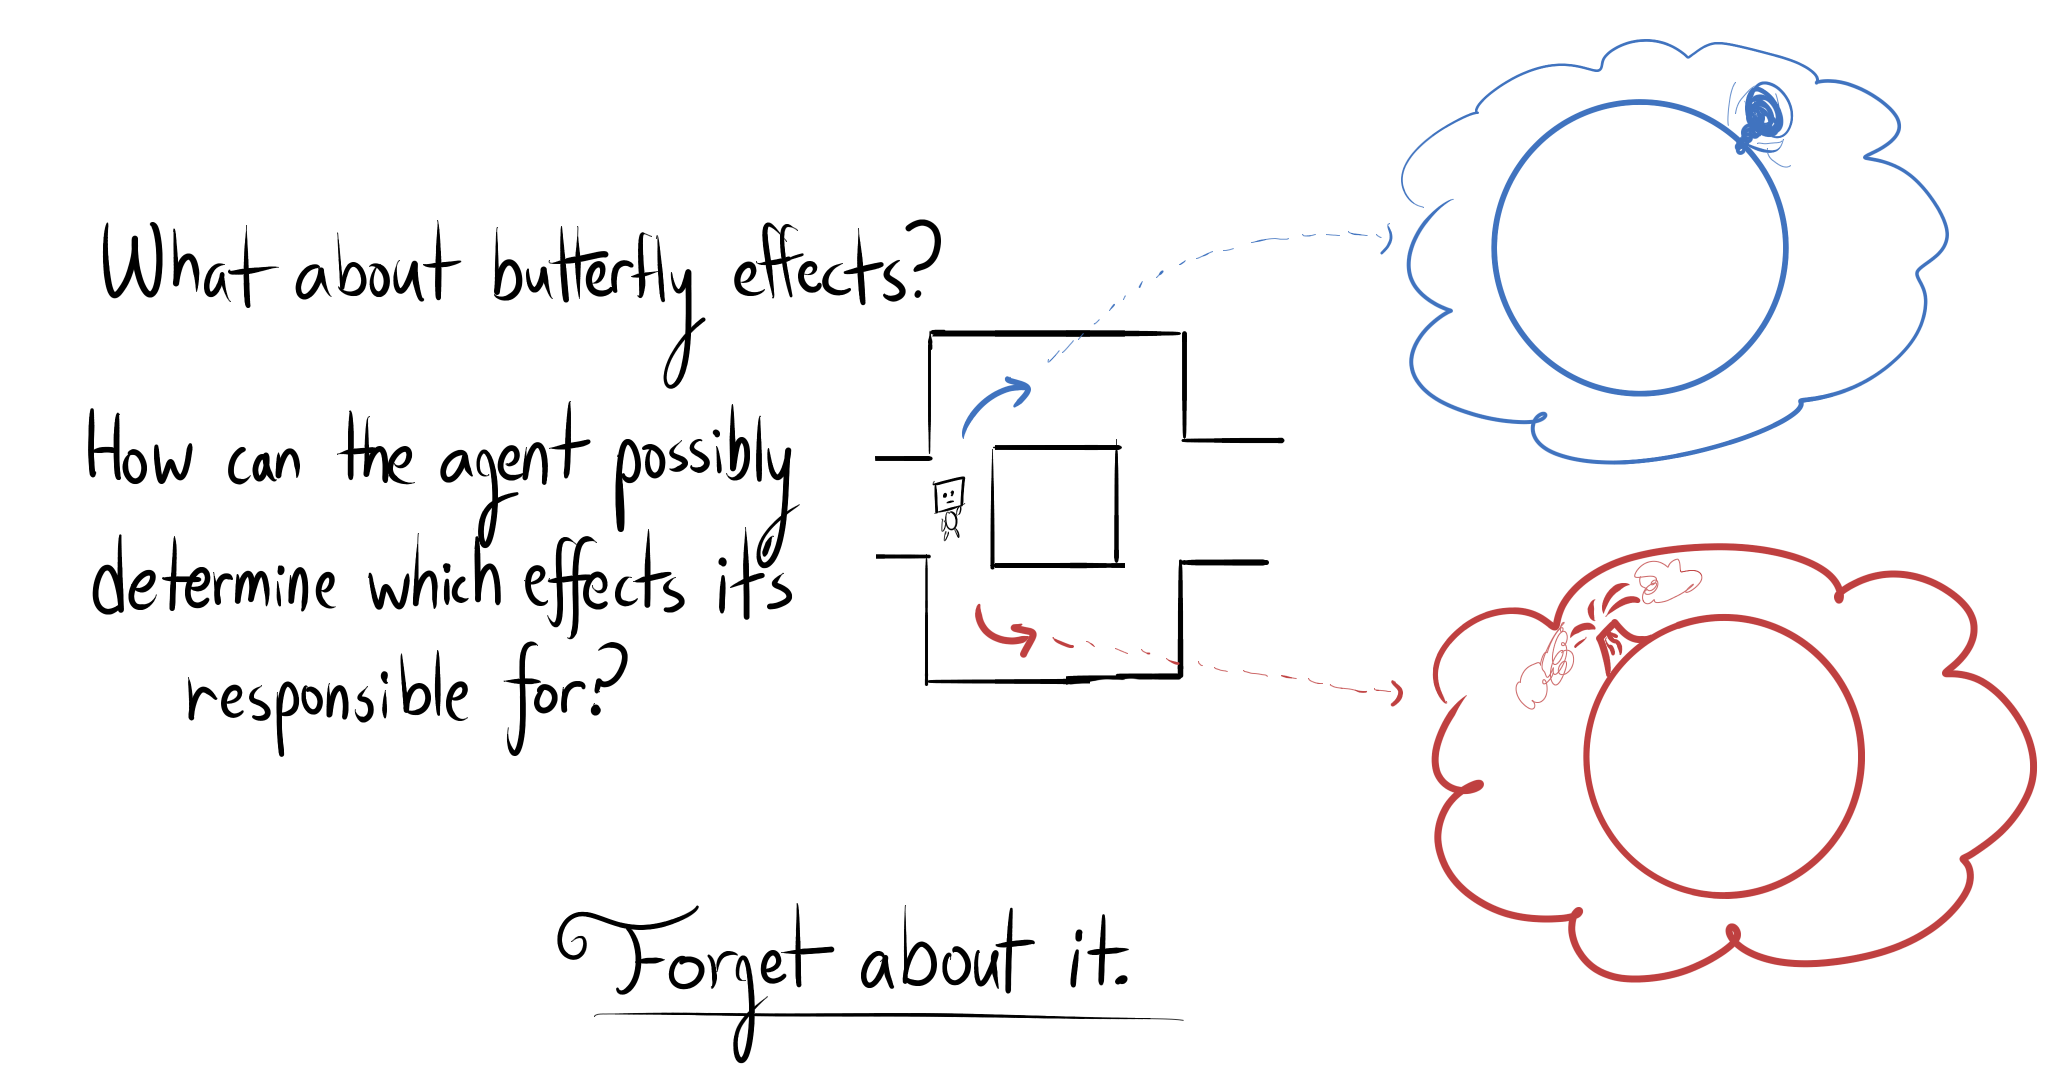 What about butterfly effects?
How can the agent possibly
determine which effects it's
responsible for?
Forget about it.